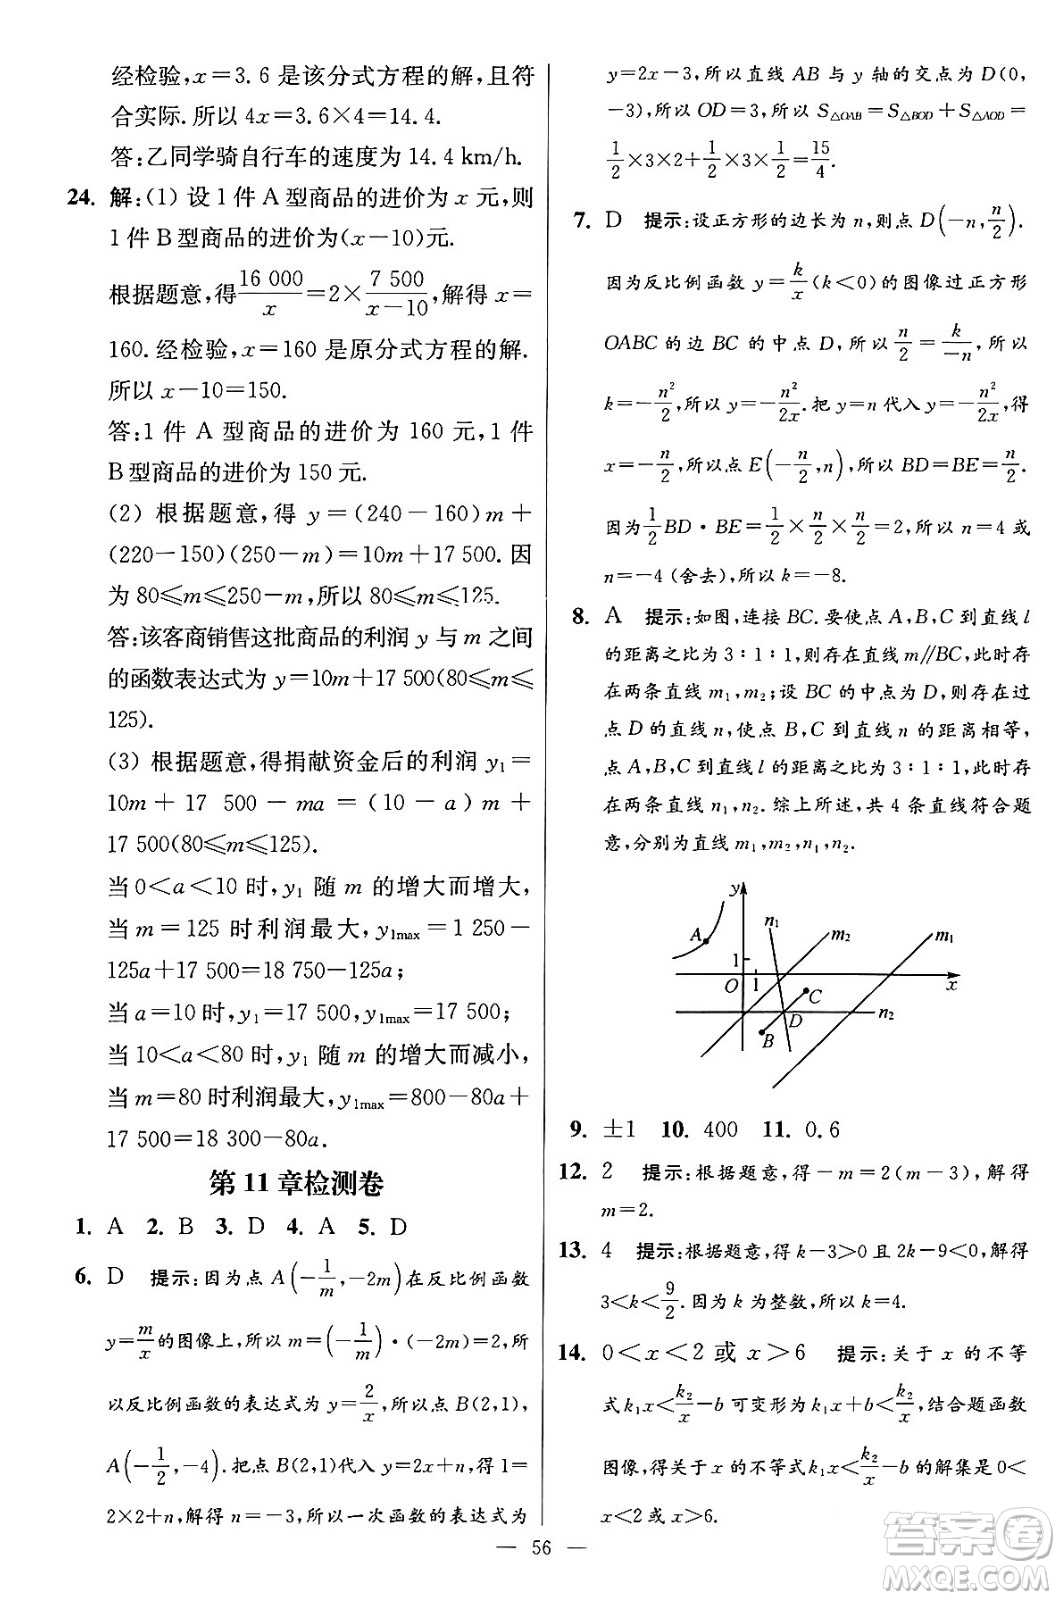 经检验,x=3.6 是该分式方程的解,且符
合实际.所以 4x=3.6×4=14.4.
答:乙同学骑自行车的速度为 14.4 km/h.
24. 解:(1) 设 1 件 A 型商品的进价为 x 元,则
1 件 B 型商品的进价为(x-10)元.
根据题意,得16 000/x=2×7 500/(x-10),解得 x=
160.经检验,x=160 是原分式方程的解.
所以 x-10=150.
答:1 件 A 型商品的进价为 160 元,1 件
B 型商品的进价为 150 元.
(2) 根据题意,得 y=(240-160)m+
(220-150)(250-m)=10m+17 500.因
为 80≤m≤250-m,所以 80≤m≤125.
答:该客商销售这批商品的利润 y 与 m 之间
的函数表达式为 y=10m+17 500(80≤m≤
125).
(3) 根据题意,得捐献资金后的利润 y₁=
10m+17 500-ma=(10-a)m+
17 500(80≤m≤125).
当 0<a<10 时,y₁ 随 m 的增大而增大,
当 m=125 时利润最大,y₁max=1 250-
125a+17 500=18 750-125a;
当 a=10 时,y₁=17 500,y₁max=17 500;
当 10<a<80 时,y₁ 随 m 的增大而减小,
当 m=80 时利润最大,y₁max=800-80a+
17 500=18 300-80a.
第 11 章检测卷
1. A 2. B 3. D 4. A 5. D
6. D 提示:因为点 A(-1/m,-2m)在反比例函数
y=m/x的图像上,所以 m=(-1/m)·(-2m)=2,所
以反比例函数的表达式为 y=2/x,所以点 B(2,1),
A(-1/2,-4).把点 B(2,1)代入 y=2x+n,得 1=
2×2+n,解得 n=-3,所以一次函数的表达式为
y=2x-3,所以直线 AB 与 y 轴的交点为 D(0,
-3),所以 OD=3,所以 S△OAB=S△BOD+S△AOD=
1/2×3×2+1/2×3×1/2=15/4.
7. D 提示:设正方形的边长为 n,则点 D(-n,n/2).
因为反比例函数 y=k/x(k<0)的图像过正方形
OABC 的边 BC 的中点 D,所以 n/2=k/-n,所以
k=-n²/2,所以 y=-n²/2x.把 y=n 代入 y=-n²/2x,得
x=-n/2,所以点 E(-n/2,n),所以 BD=BE=n/2.
因为1/2BD·BE=1/2×n/2×n/2=2,所以 n=4 或
n=-4 (舍去),所以 k=-8.
8. A 提示:如图,连接 BC.要使点 A,B,C 到直线 l
的距离之比为 3∶1∶1,则存在直线 m//BC,此时存
在两条直线 m₁,m₂;设 BC 的中点为 D,则存在过
点 D 的直线 n,使点 B,C 到直线 n 的距离相等,
点 A,B,C 到直线 l 的距离之比为 3∶1∶1,此时存
在两条直线 n₁,n₂.综上所述,共 4 条直线符合题
意,分别为直线 m₁,m₂,n₁,n₂.
y
n₁
A
m₂
m₁
1
O 1
x
C
D
n₂
B
9. ±1 10. 400 11. 0.6
12. 2 提示:根据题意,得-m=2(m-3),解得
m=2.
13. 4 提示:根据题意,得 k-3>0 且 2k-9<0,解得
3<k<9/2.因为 k 为整数,所以 k=4.
14. 0<x<2 或 x>6 提示:关于 x 的不等
式k₁x<k₂/x-b 可变形为 k₁x+b<k₂/x,结合题函数
图像,得关于 x 的不等式k₁x<k₂/x-b 的解集是 0<
x<2 或 x>6.
— 56 —
答案圈
MXQE.COM